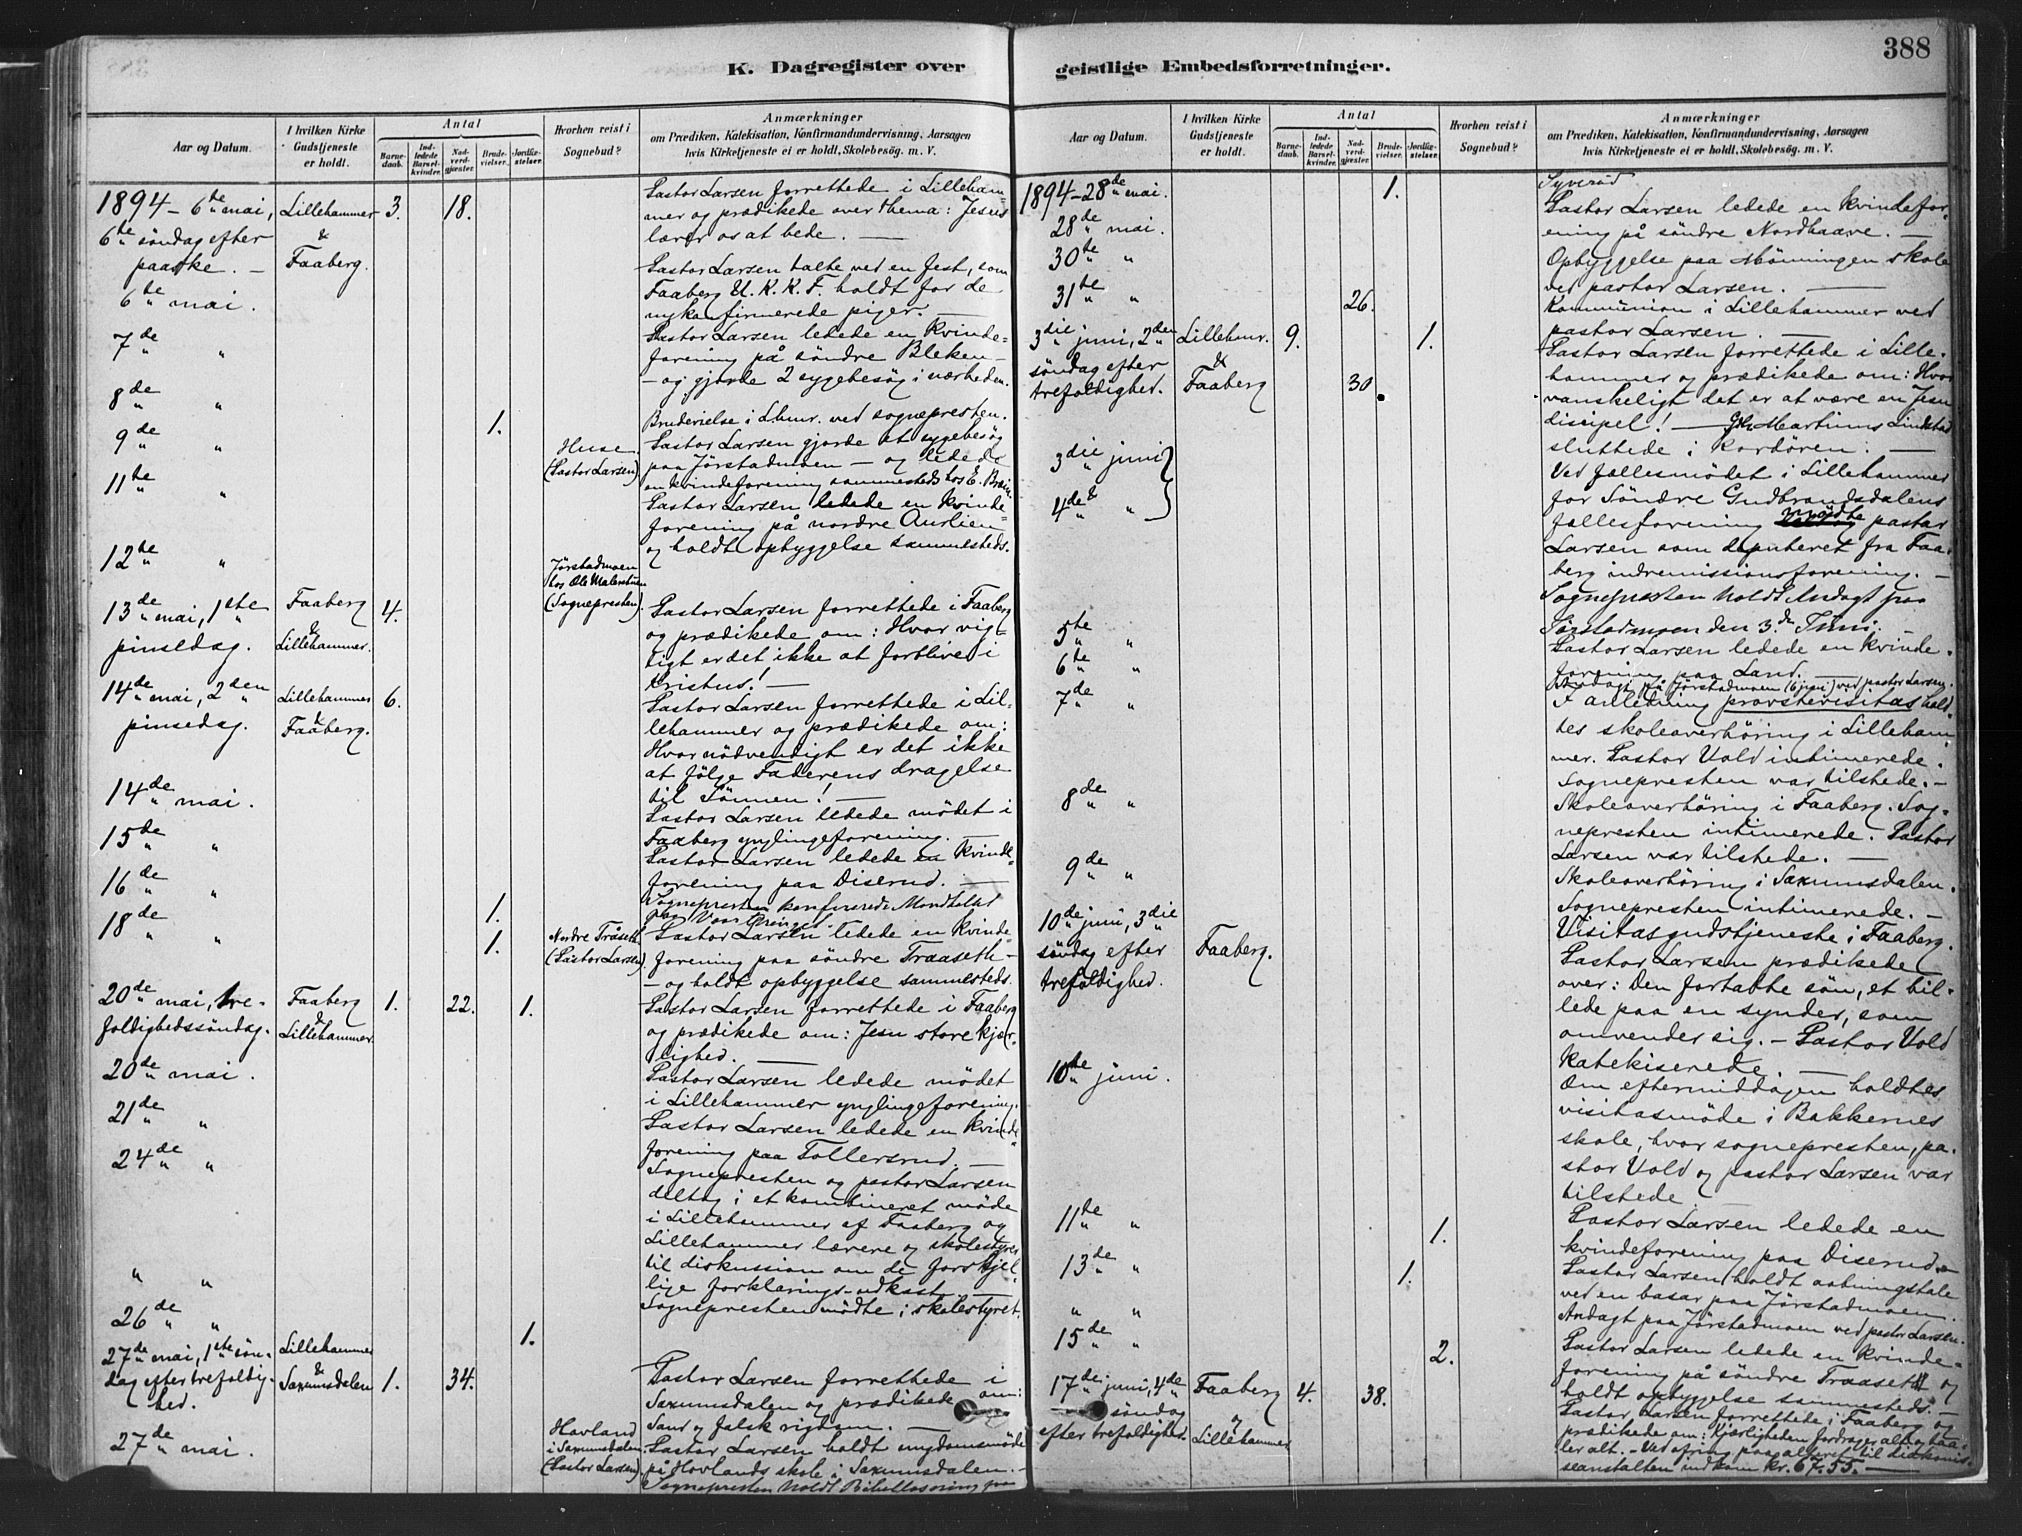 388
K. Dagregister over
geistlige Embedsforretninger.
Aar og Datum.
I hvilken Kirke
Gudstjeneste
er holdt.
Antal
Barne-
daab.
Ind-
ledede
Barsel-
kvinder.
Nad-
verd-
gjæster.
Brude-
vielser.
Jordfæ-
stelser.
Hvorhen reist i
Sognebud?
Anmærkninger
om Prædiken, Katekisation, Konfirmandundervisning, Aarsagen
hvis Kirketjeneste ei er holdt, Skolebesøg. m. V.
1894 - 6te mai,
6te söndag efter
paaske. -
Lillehammer
&
Faaberg.
3.
18.
Pastor Larsen forrettede i Lilleham-
mer og prædikede over thema: Jesus
lærer os at bede. —
6te mai.
Pastor Larsen talte ved en fest, som
Faaberg U. K. K. F. holdt for de
nykonfirmerede piger. —
7de "
Pastor Larsen ledede en kvinde-
forening på söndre Bleken -
- og gjorde 2 sygebesög i nærheden.
8de "
1.
Brudevielse i Lhmr. ved sognepresten.
9de "
Huse
(Pastor Larsen)
Pastor Larsen gjorde et sygebesög
paa Jörstadmoen - og ledede
en kvindeforening sammesteds hos E.
11te "
Pastor Larsen ledede en kvinde-
forening på nordre Aurlien
og holdt opbyggelse sammesteds.
12te "
Jörstadmoen
hos Ole Malerstuen
(Sognepresten).
13de mai, 1ste
pinsedag.
Faaberg
&
Lillehammer.
4.
Pastor Larsen forrettede i Faaberg
og prædikede om: Hvor vig-
tigt er det ikke at forblive i
Kristus! —
14de mai, 2den
pinsedag.
Lillehammer
&
Faaberg.
6.
Pastor Larsen forrettede i Lil-
lehammer og prædikede om:
Hvor nödvendigt er det ikke
at fölge Faderens dragelse
til Sönnen! —
14de mai.
Pastor Larsen ledede mödet i
Faaberg ynglingeforening. —
15de "
Pastor Larsen ledede en kvinde-
forening paa Diserud. —
16de "
1.
Sognepresten konfirerede
18de "
1.
Nordre Tråseth
(Pastor Larsen).
Pastor Larsen ledede en kvinde-
forening paa söndre Traaseth -
- og holdt opbyggelse sammesteds.
20de mai, tre-
foldighedssöndag.
Faaberg
&
Lillehammer.
1.
22.
1.
Pastor Larsen forrettede i Faaberg
og prædikede om: Jesu store kjær-
lighed. —
20de mai.
Pastor Larsen ledede mödet
i Lillehammer ynglingeforening.
21de "
Pastor Larsen ledede en kvinde-
forening paa Tollersrud. —
24de "
Sognepresten og pastor Larsen
deltog i et kombineret möde
i Lillehammer af Faaberg og
Lillehammer lærere og skolestyrer
til diskussion om de forskjel-
lige forklarings-udkast. —
" "
Sognepresten mödte i skolestyret.
26de "
1.
27de mai, 1ste sön-
dag efter trefoldig-
hed.
Lillehammer
&
Saxumsdalen
1.
34.
Pastor Larsen forrettede i
Saxumsdalen og prædikede om:
Sand og falsk rigdom. —
27de mai.
Hovland
i Saxumsdalen.
(Pastor Larsen).
Pastor Larsen holdt ungdomsmöde
på Hovlands skole i Saxumsdalen. -
Sognepresten holdt Bibellæsning paa
Aar og Datum.
I hvilken Kirke
Gudstjeneste
er holdt.
Antal
Barne-
daab.
Ind-
ledede
Barsel-
kvinder.
Nad-
verd-
gjæster.
Brude-
vielser.
Jordfæ-
stelser.
Hvorhen reist i
Sognebud?
Anmærkninger
om Prædiken, Katekisation, Konfirmandundervisning, Aarsagen
hvis Kirketjeneste ei er holdt, Skolebesøg. m. V.
Syverud
1894 - 28de mai.
1.
Pastor Larsen ledede en kvindefor-
ening på söndre Nordhaave. —
28de mai.
30te "
Opbyggelse paa Mönningen skole
ved pastor Larsen. —
31te "
26.
Kommunion i Lillehammer ved
pastor Larsen. —
3die juni, 2den
söndag efter
trefoldighed.
Lillehmr.
&
Faaberg
9.
30.
1.
Pastor Larsen forrettede i Lille-
hammer og prædikede om: Hvor
vanskeligt det er at være en Jesu
discipel! — Martinus Lindstad
sluttede i kordören. —
3die juni
&
4de "
Ved fællesmödet i Lillehammer
for Söndre Gudbrandsdalens
fællesforening mödte pastor
Larsen som deputeret fra Faa-
berg indremissionsforening. —
Sognepresten holdt Andagt paa
Jörstadmoen den 3de Juni. —
5te "
Pastor Larsen ledede en kvinde-
forening paa Land. —
6te "
Andagt på Jörstadmoen (6 juni) ved pastor Larsen.
7de "
I anledning provstevisitas hold-
tes skoleoverhöring i Lilleham-
mer. Pastor Vold intimerede.
Sognepresten var tilstede. -
8de "
Skoleoverhöring i Faaberg. Sog-
nepresten intimerede. Pastor
Larsen var tilstede. —
9de "
Skoleoverhöring i Saxumsdalen.
Sognepresten intimerede. -
10de juni, 3die
söndag efter
trefoldighed.
Faaberg.
Visitasgudstjeneste i Faaberg.
Pastor Larsen prædikede
over: Den fortabte sön, et bil-
lede paa en synder, som
omvender sig. - Pastor Vold
katekiserede. —
10de juni.
Om eftermiddagen holdtes
visitasmöde i Bakkernes
skole, hvor sognepresten, pa-
stor Vold og pastor Larsen var
tilstede
11te "
1.
Pastor Larsen ledede en
kvindeforening paa Diserud. -
13de "
1.
Pastor Larsen holdt aabningstale
ved en basar paa Jörstadmoen.
" "
Andagt paa Jörstadmoen ved pastor Larsen.
15de "
2.
Pastor Larsen ledede en kvinde-
forening på söndre Traaseth og
holdt opbyggelse sammesteds. -
17de juni, 4de
söndag
efter trefoldighed.
Faaberg
og
Lillehammer
4.
38.
Pastor Larsen forrettede i Faaberg og
prædikede om: Kjærligheden fordrager alt og taa-
ler alt. - Ved ofring paa alteret til diakonis-
seanstalten indkom kr. 67.55. —